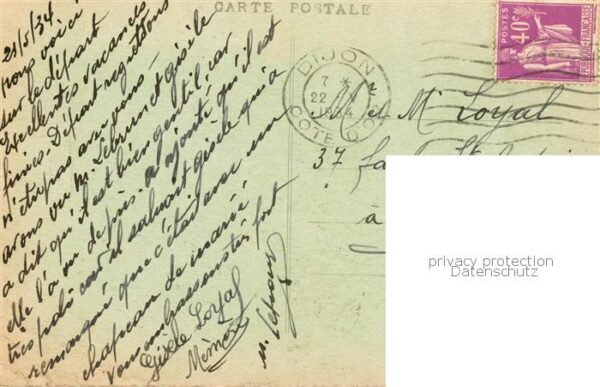 CARTE POSTALE
21/5/34
nous voici
sur le départ
Excellentes vacances
finies. Départ regrettons
n'être pas avec vous
avons vu M. Lebrun et Gisèle
a dit qu'il est bien gentil car
elle l'a vu de près. a ajouté qu'il est
très poli car il saluait Gisèle qui a
remarqué que c'était avec un
chapeau de marié,
vous embrassons très fort
Gisèle Loyal
Mémé
POSTES
40c
REPUBLIQUE FRANÇAISE
DIJON
7 *
22
COTE D'OR
Mr et Me Loyal
37
à
privacy protection
Datenschutz